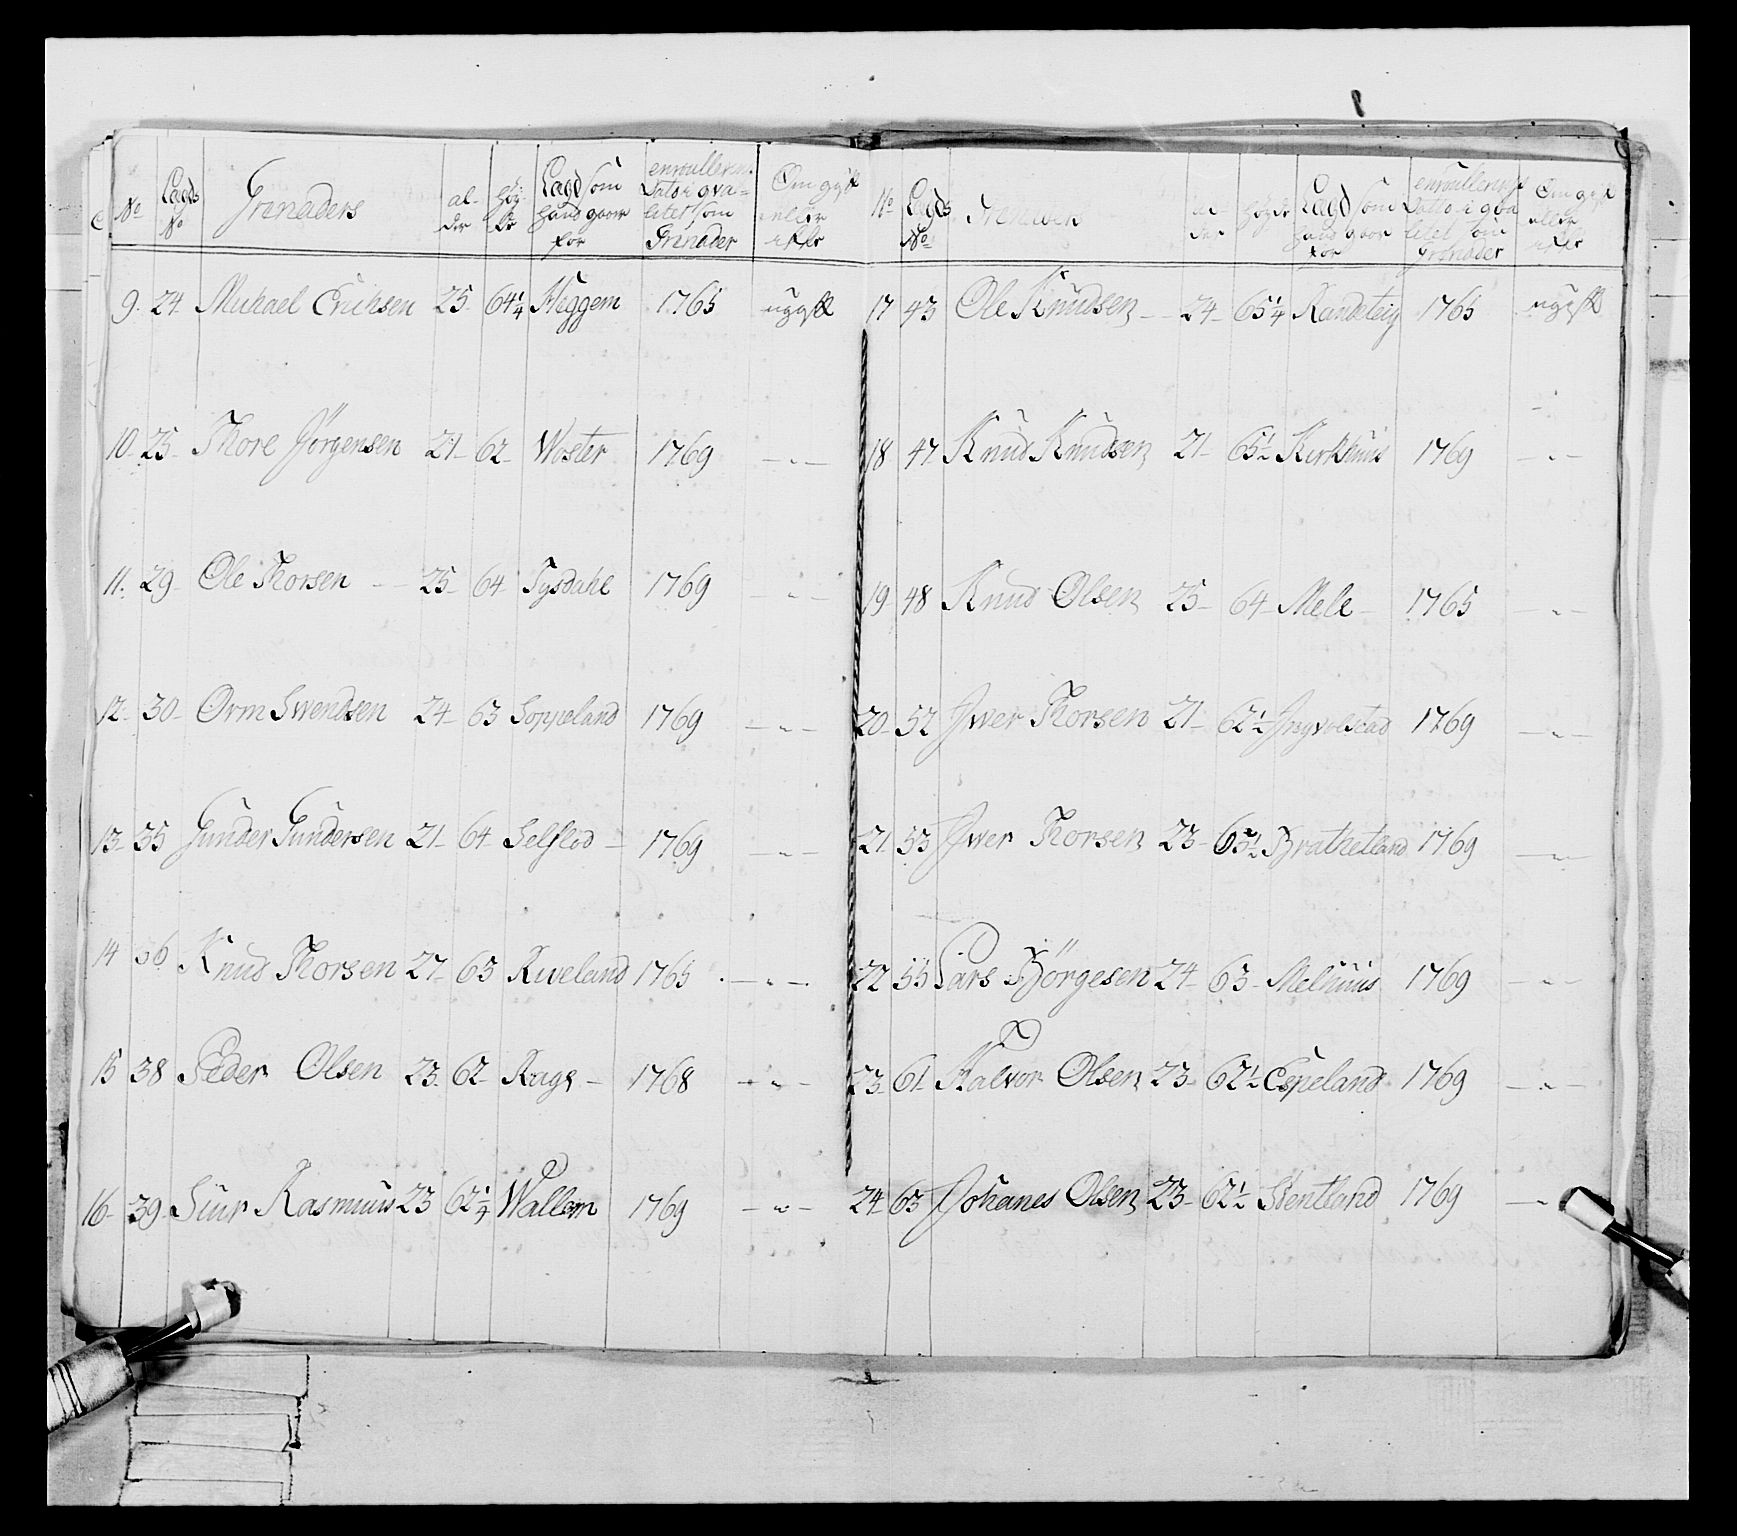 No Lagds No Grenaders al- der Høy- de Lagd som hand gaaer for enroullerin. Datto i qva- litet som Grenader Om gift eller ikke
9. 24. Michael Erichsen 25 64¼ Heggem 1765 ugift
10. 25. Thore Jørgensen 21 62 Woster 1769 — " —
11. 29. Ole Thorsen 25 64 Tysdahl 1769 — " —
12. 30 Orm Swendsen 24 63 Soppeland 1769 — " —
13. 35 Gunder Gundersen 21 64 Selflod 1769 — " —
14 36 Knud Thorsen 27 63 Riveland 1765 — " —
15 38 Peder Olsen 23 62 Rage 1768 — " —
16 39 Siur Rasmuus 23 62¼ Wallem 1769 — " —
No Lagds No Grenaders al- der Høyde Lagd som hand gaaer for enroullerings Datto i qva litet som Grenader Om gift eller ikke
17 43 Ole Knudsen 24 65¼ Randeteig 1765 ugift
18 47 Knud Knudsen 21 65½ Kirkhuus 1769 — " —
19 48 Knud Olsen 25 64 Mele 1765 — " —
20 52 Iwer Thorsen 21 62½ Ingvolstad 1769 — " —
21 53 Iwer Thorsen 23 63½ Bratheland 1769 — " —
22 55 Lars Børgesen 24 63 Melhuus 1769 — " —
23 61 Halvor Olsen 23 62½ Espeland 1769 — " —
24 63 Johanes Olsen 23 62½ Stentland 1769 — "